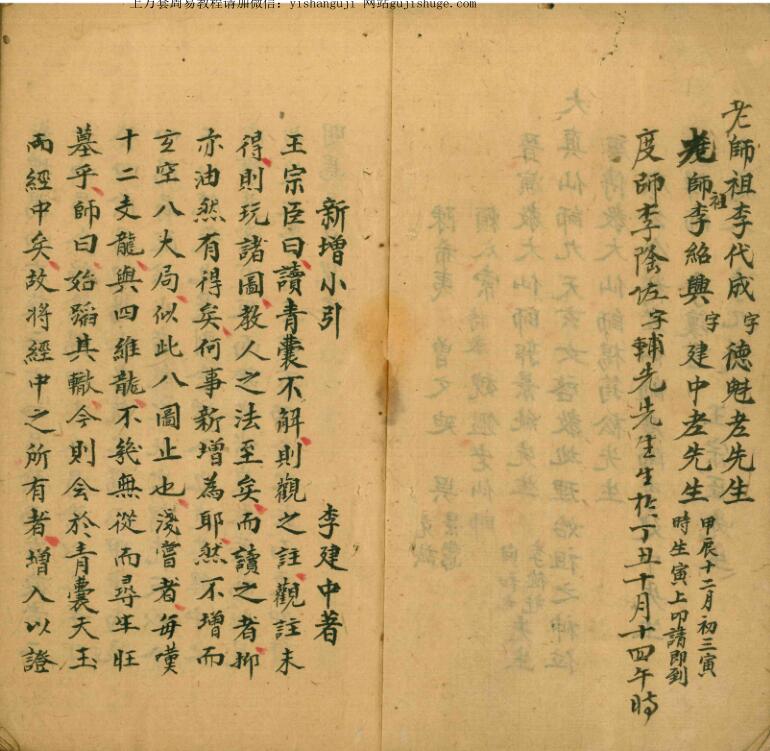 上万套周易教程请加微信：yishanguji 网站gujishuge.com
老師祖李代成字德魁老先生
老師祖李紹興字建中老先生
甲辰十二月初三寅
時生寅上叩請即到
度師李陰佐字輔先先生生於丁丑十月十四午時
新增小引 李建中著
王宗臣曰讀青囊不解則觀之註觀註未
得則玩諸圖教人之法至矣而讀之者抑
亦油然有得矣何事新增為耶然不增而
玄空八大局似此八圖止也淺嘗者每嘆
十二支龍與四維龍不幾無從而尋生旺
墓乎師曰始蹈其轍今則会於青囊天玉
兩經中矣故將經中之所有者增入以證